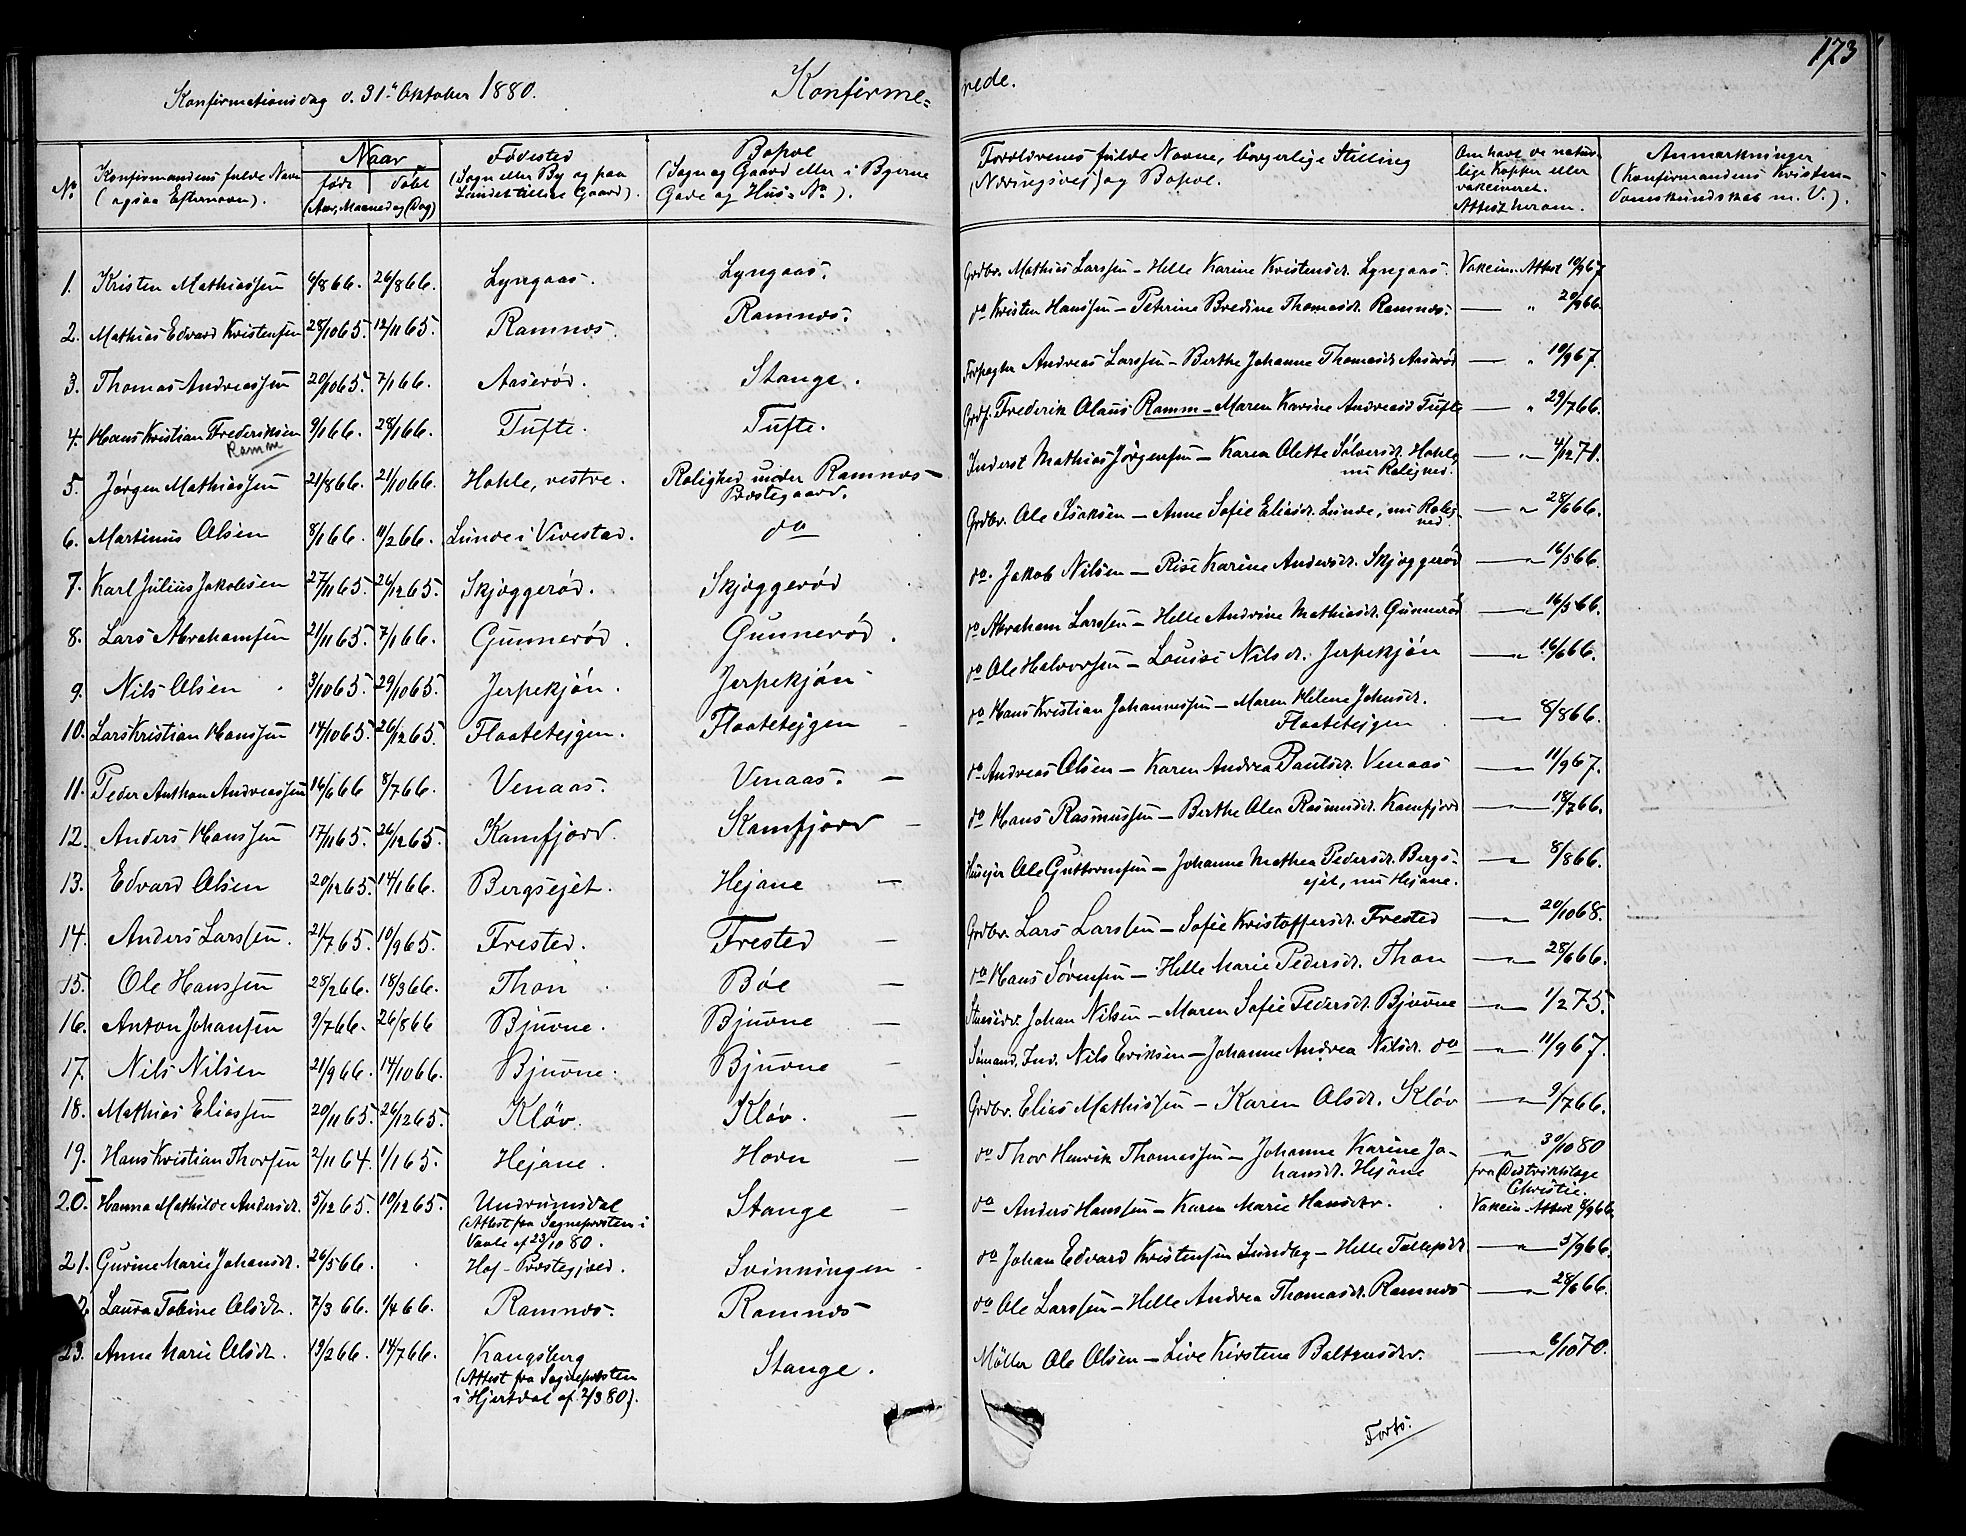 173
Konfirmationsdag d. 31te Oktober 1880. Konfirme= rede.
No | Konfirmandens fulde Navn (ogsaa Efternavn). | Naar født døbt (Aar, Maaned og Dag) | Fødested (Sogn eller By og paa Landet tillige Gaard). | Bopæl (Sogn og Gaard eller i Byerne Gade og Hus-No). | Forældrenes fulde Navne, borgerlige Stilling (Næringsvej) og Bopæl. | Om havt de natur- lige Kopper eller vakcineret. Attest herom. | Anmærkninger (Konfirmandens Kristen- domskundskab m. V.).
1. Kristen Mathiassen 6/866. 26/866. Lyngaas. Lyngaas. Grdbr. Mathias Larssen - Helle Karine Kristensdr. Lyngaas. Vakcin. Attest 10/967.
2. Mathias Edvard Kristensen 28/1065. 12/1165. Ramnæs. Ramnæs. do Kristen Hanssen - Petrine Bredine Thomasdr. Ramnæs. — " 20/966.
3. Thomas Andreassen 20/1065. 7/166. Aaserød. Stange. Forpagter Andreas Larssen - Berthe Johanne Thomasdr Aaserød — " 10/967.
4. Hans Kristian Frederiksen Ramm 9/166. 28/166. Tufte. Tufte. Grdf. Frederik Olaus Ramm - Maren Karine Andreasd Tufte — " 29/766.
5. Jørgen Mathiassen 21/866. 21/1066. Hohle, vestre. Rolighed under Ramnæs Præstegaard. Inderst Mathias Jørgensen - Karen Olette Sølversdr. Hohle, nu Rolighed. — " 4/1271.
6. Martinus Olsen 8/166. 11/266. Lunde i Vivestad. do Grdbr. Ole Isaksen - Anne Sofie Eliasdr. Lunde, nu Rolig- hed. — " 28/666.
7. Karl Julius Jakobsen 27/1165. 26/1265. Skjæggerød. Skjæggerød do. Jakob Nilsen - Rise Karine Andersdr. Skjæggerød — " 16/566.
8. Lars Abrahamsen 21/1165. 7/166. Gunnerød. Gunnerød. do Abraham Larssen - Helle Andrine Mathiasdr. Gunnerød — " 16/566.
9. Nils Olsen 3/1065. 29/1065. Jerpekjøn. Jerpekjøn do Ole Halvorsen - Louise Nilsdr. Jerpekjøn — " 16/666.
10. Lars Kristian Hanssen 14/1065. 26/1265. Flaateteigen. Flaatetejgen do Hans Kristian Johannessen - Maren Helene Johnsdr. Flaatetejgen — " 8/866.
11. Peder Anthon Andreassen 16/666 8/766. Venaas. Venaas. — do Andreas Olsen - Karen Andrea Paulsdr. Venaas — " 11/967.
12. Anders Hanssen 17/1165. 26/1265. Kamfjord. Kamfjord — do Hans Rasmussen - Berthe Olea Rasmusdr. Kamfjord — " 18/766.
13. Edvard Olsen 20/1265. 14/166. Bergsejet. Hejane — Husejer Ole Guttormsen - Johanne Mathea Pedersdr. Bergs- ejet, nu Hejane. — " 8/866.
14. Anders Larssen. 21/765. 10/965. Frested. Frested — Grdbr. Lars Larssen - Sofie Kristoffersdr. Frested — " 20/1068.
15. Ole Hanssen 28/266. 18/366. Thon Bøe — do Hans Sørensen - Helle Marie Pedersdr. Thon — " 28/666.
16. Anton Johansen 9/766. 26/866 Bjuone. Bjuone — Johan Nilsen - Maren Sofie Pedersdr. Bjuone — " 1/275.
17. Nils Nilsen 21/966. 14/1066. Bjuone. Bjuone — Sømand, Ind. Nils Eriksen - Johanne Andrea Nilsdr. do — " 11/967.
18. Mathias Eliassen 20/1165. 26/1265. Kløv. Kløv. — Grdbr. Elias Mathissen - Karen Olsdr. Kløv — " 9/766.
19. Hans Kristian Thorsen 2/1164. 1/165. Hejane. Horn — do Thor Henrik Thomassen - Johanne Karine Jo- hansdr. Hejane " 30/1080 fra Distriktslæge Christie.
20. Hanna Mathilde Andersdr. 5/1265. 10/1265. Undrumsdal (Attest fra Sognepresten i Vaale af 23/1080. Stange — do Anders Hanssen - Karen Marie Hansdtr. Vakcin. Attest 8/966.
21. Gurine Marie Johansdr. 26/566. Hof- Præstegjeld. Svinningen do Johan Edvard Kristensen Lundeg - Helle Tollefsdr — " 5/966.
2. Laura Tobine Olsdr. 7/366. 1/466. Ramnæs. Ramnæs do Ole Larssen - Helle Andrea Thomasdr. Ramnæs — " 28/666.
23. Anne Marie Olsdr. 19/266. 14/766. Kongsberg (Attest fra Sognepresten i Hjertdal af 2/380). Stange. Møller Ole Olsen - Live Kirstine Baltzersdtr. — " 6/1070.
Forts.